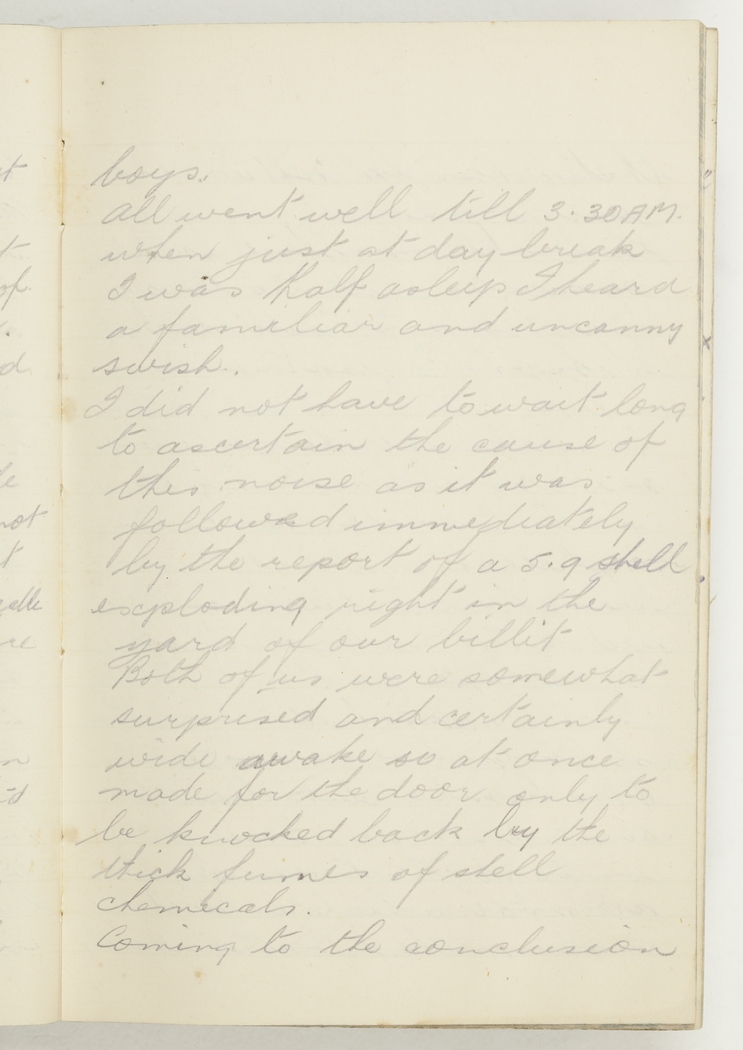 boys.
All went well till 3.30 AM.
when just at day break
I was half asleep I heard
a familiar and uncanny
swish.
I did not have to wait long
to ascertain the cause of
this noise as it was
followed immediately
by the report of a 5.9 shell
exploding right in the
yard of our billit
Both of us were somewhat
surprised and certainly
wide awake so at once
made for the door only to
be knocked back by the
thick fumes of shell
chemicals.
Coming to the conclusion